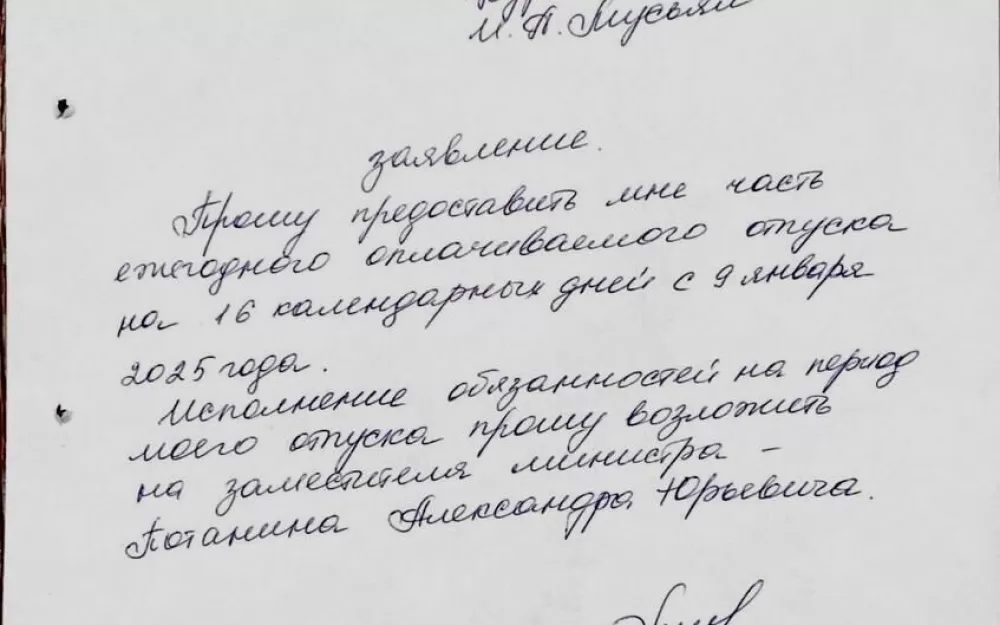 И. П. Мусьял
заявление.
Прошу предоставить мне часть
ежегодного оплачиваемого отпуска
на 16 календарных дней с 9 января
2025 года.
Исполнение обязанностей на период
моего отпуска прошу возложить
на заместителя министра –
Потанина Александра Юрьевича.